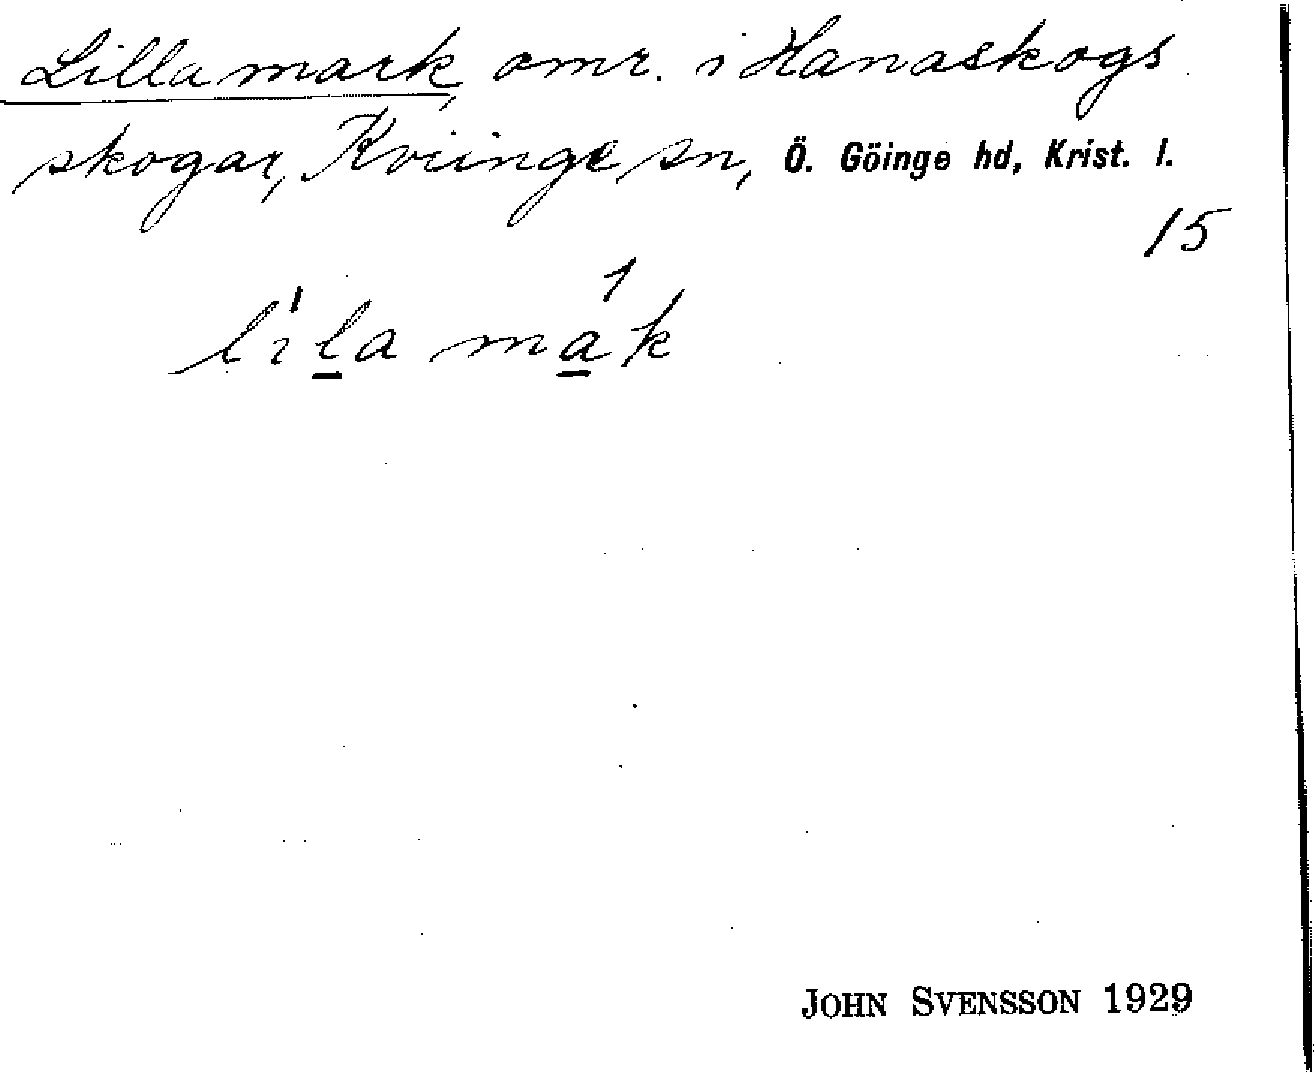 Lillamark, omr. i Hanaskogs
skogar, Kviinge sn, Ö. Göinge hd, Krist. l.
15
lila mak
JOHN SVENSSON 1929